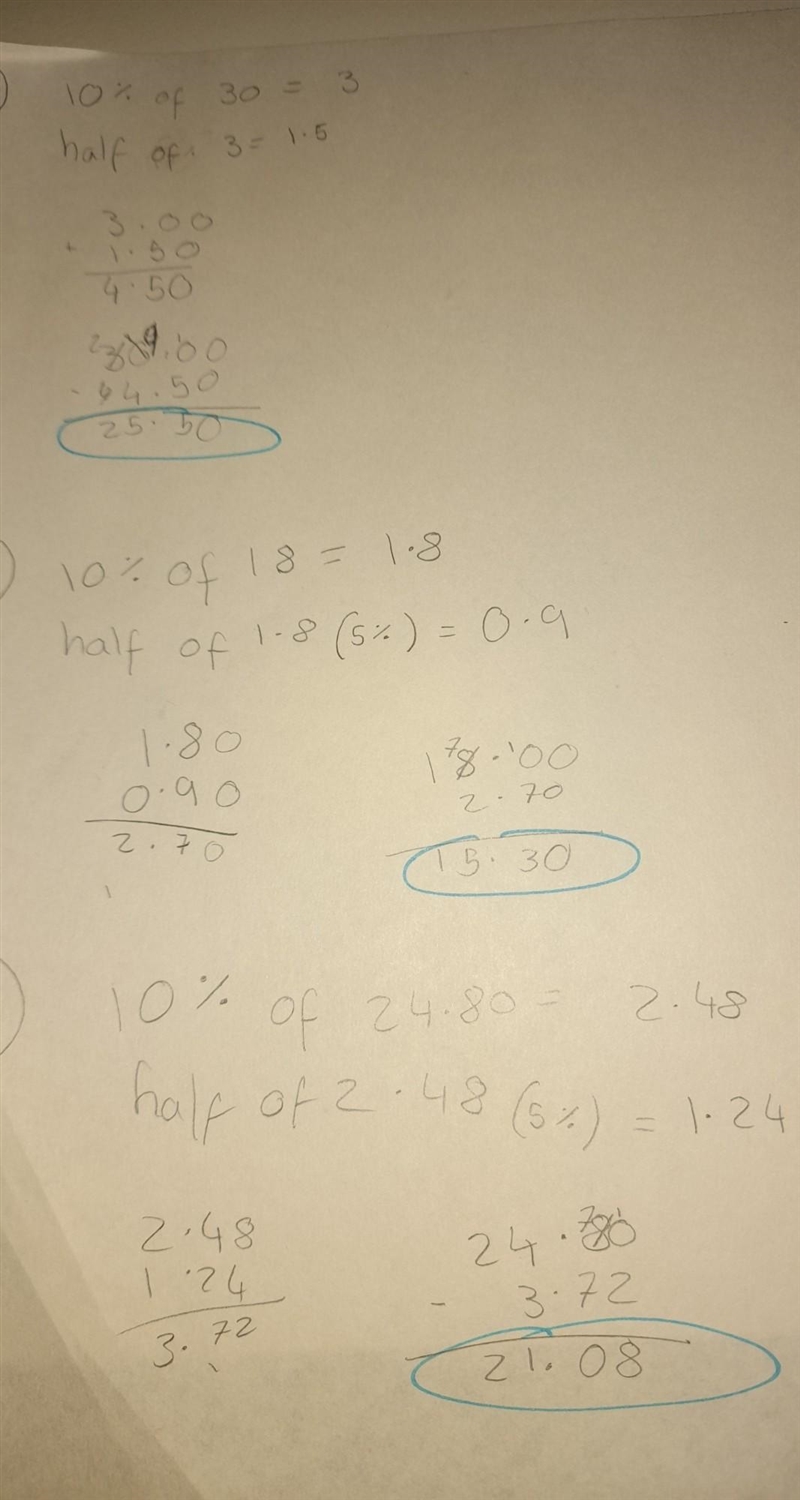 )
10% of 30 = 3
half of 3 = 1.5
3.00
+ 1.50
4.50
2 9
30.00
- 4.50
25.50
)
10% of 18 = 1.8
half of 1.8 (5%) = 0.9
1.80
0.90
2.70
1
7 1
18.00
2.70
15.30
)
10% of 24.80 = 2.48
half of 2.48 (5%) = 1.24
2.48
1.24
3.72
1
7 1
24.80
- 3.72
21.08